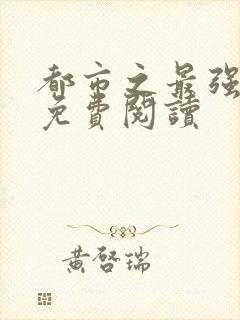 都市之最强
免費閱讀
黃啓瑞